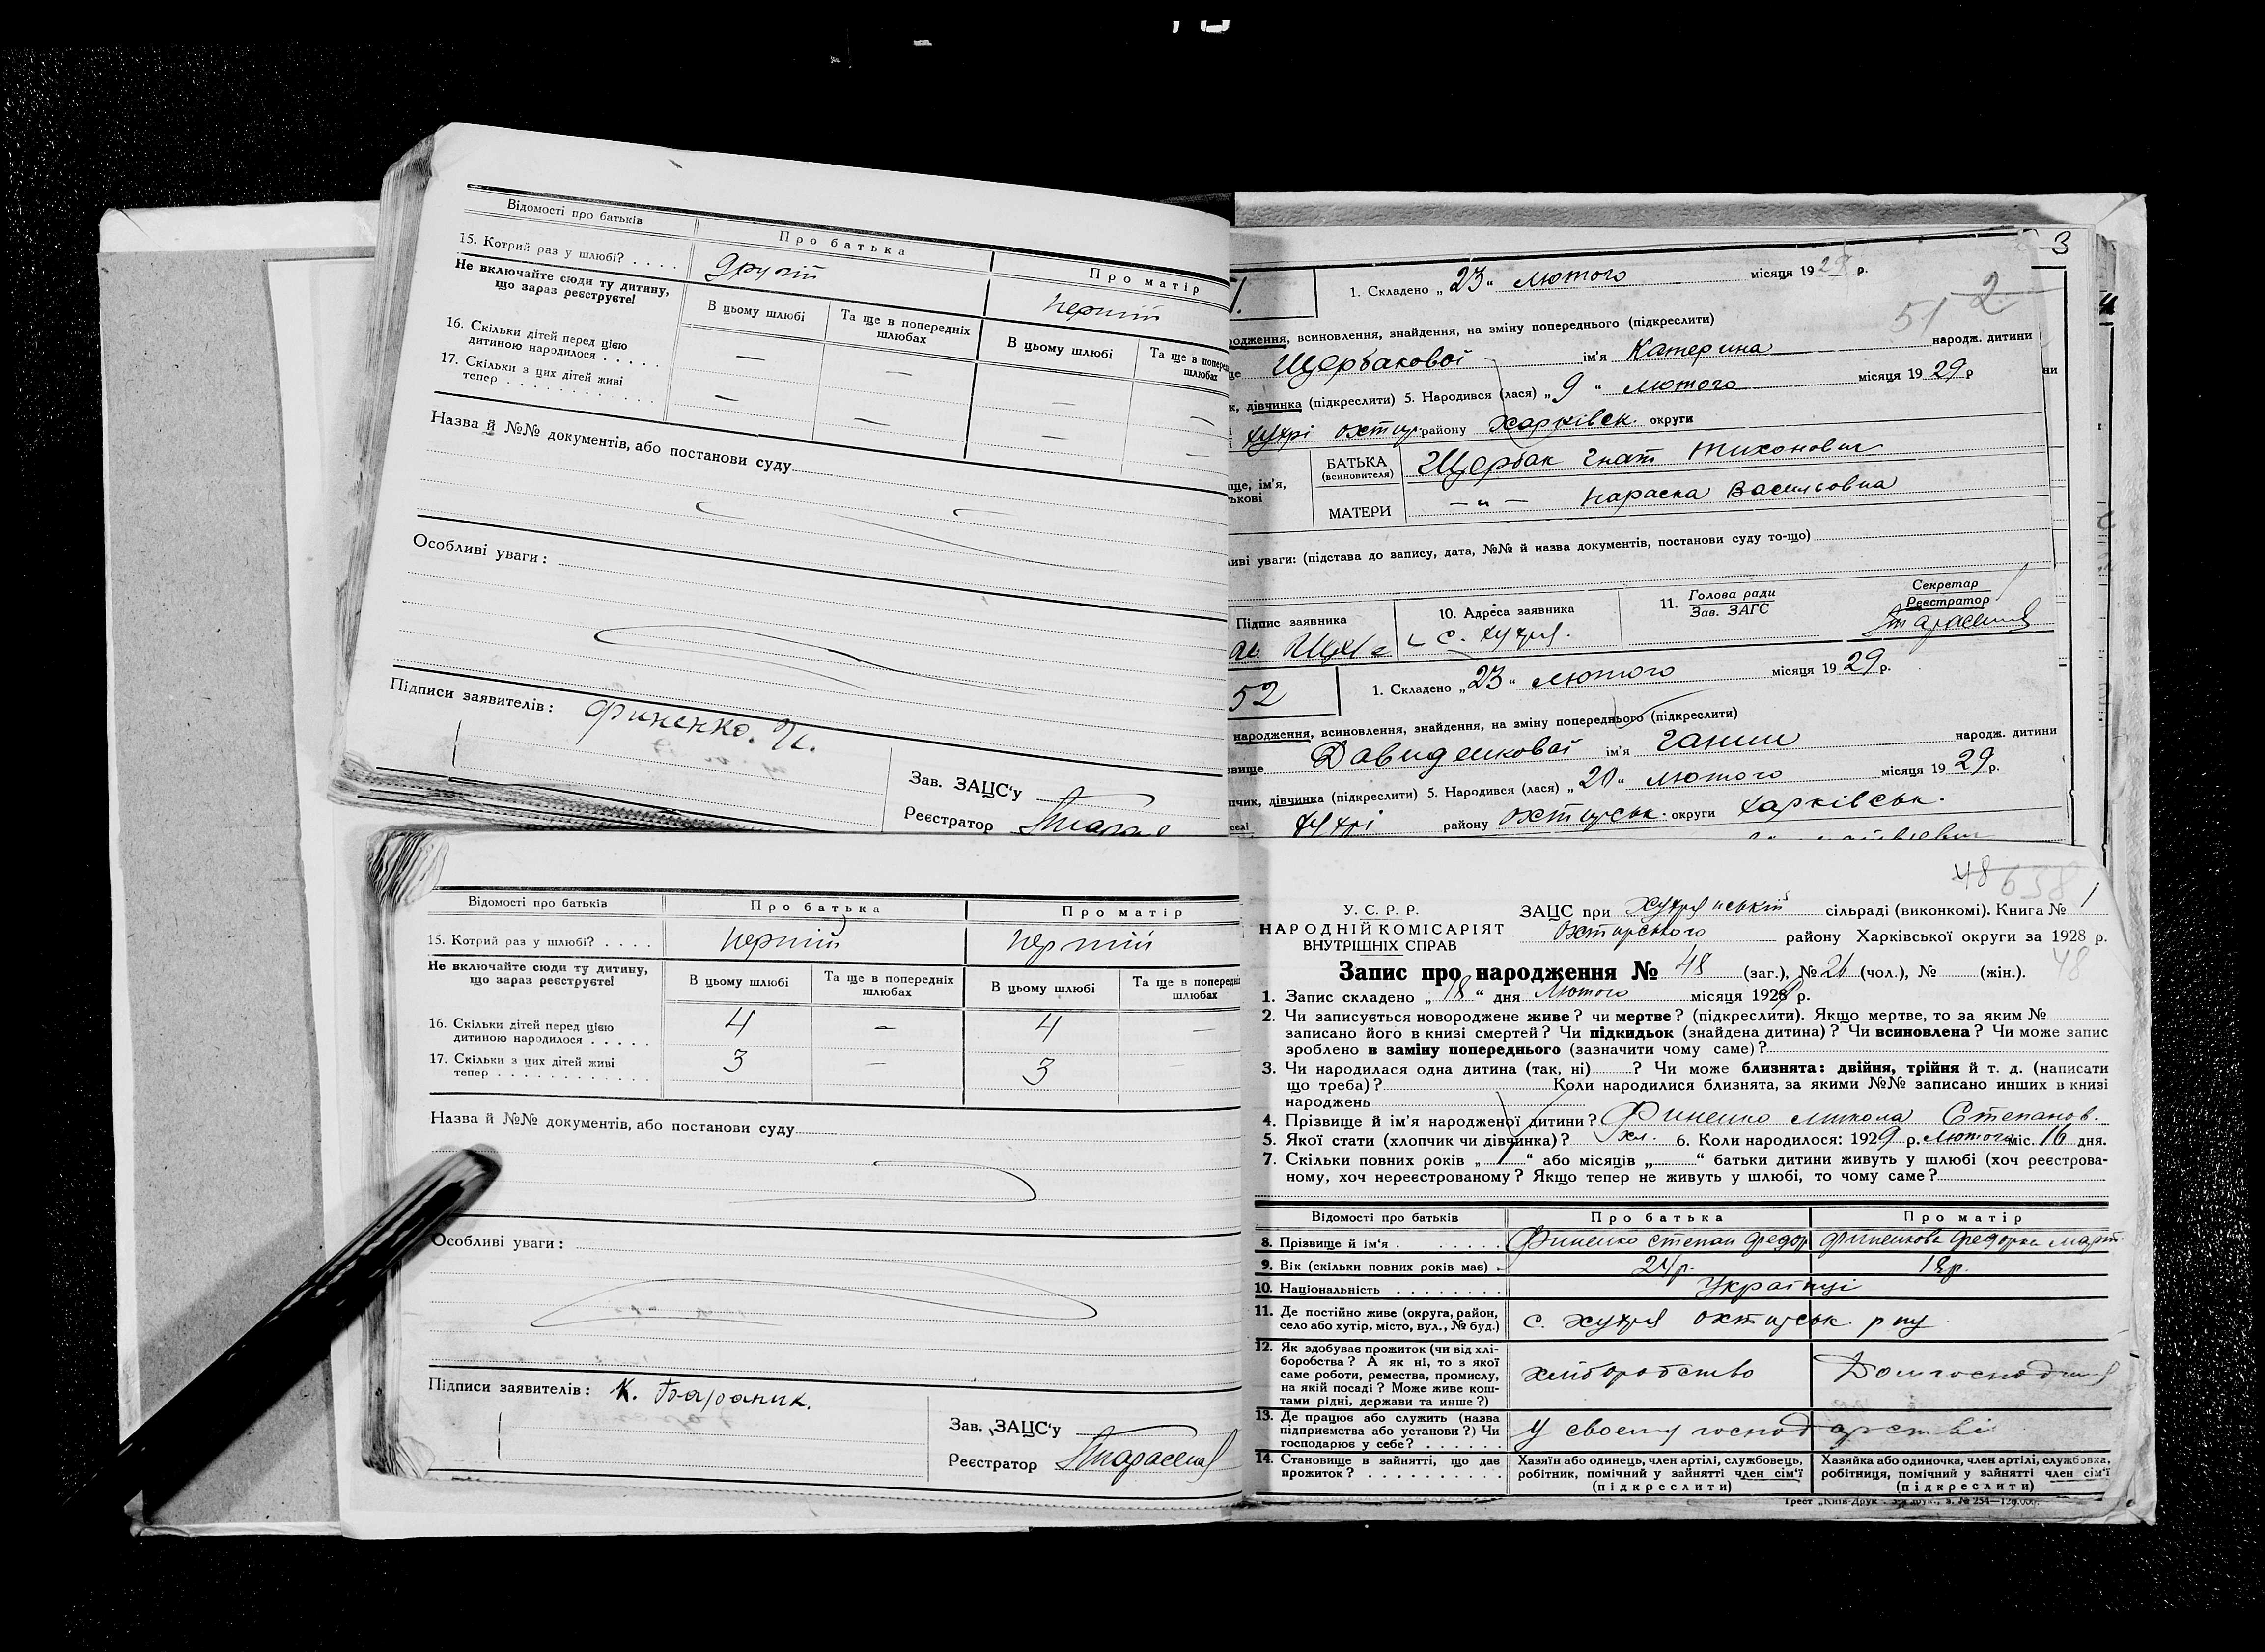 Відомості про батьків
Про батька
Про матір
15. Котрий раз у шлюбі? . . . .
другий
перший
Не включайте сюди ту дитину,
що зараз реєструєте!
В цьому шлюбі
Та ще в попередніх
шлюбах
В цьому шлюбі
Та ще в поперед
шлюбах
16. Скільки дітей перед цією
дитиною народилося . . . . .
— — — —
17. Скільки з цих дітей живі
тепер . . . . . . . . . . . .
— — — —
Назва й №№ документів, або постанови суду
Особливі уваги:
Підписи заявителів: Финенко. И.
Зав. ЗАЦС'у
Реєстратор
3
1. Складено „23" лютого місяця 1929 р.
51 2
родження, всиновлення, знайдення, на зміну попереднього (підкреслити)
Щербакової ім'я Катерина народж. дитини
к, дівчинка (підкреслити) 5. Народився (лася) „9" лютого місяця 1929 р
Хухрі Охтир. району Харківськ. округи
ище, ім'я,
ькові
БАТЬКА
(всиновителя)
Щербак Гнат Тихонович
МАТЕРИ
—„— Параска Васильовна
иві уваги: (підстава до запису, дата, №№ й назва документів, постанови суду то-що)
Підпис заявника
10. Адреса заявника
с. Хухря.
11. Голова ради
Зав. ЗАГС
Секретар
Реєстратор
52
1. Складено „23" лютого місяця 1929 р.
народження, всиновлення, знайдення, на зміну попереднього (підкреслити)
звище Давиденкової ім'я Ганни народж. дитини
пчик, дівчинка (підкреслити) 5. Народився (лася) „20" лютого місяця 1929 р.
селі Хухрі району Охтирськ. округи Харківськ.
Відомості про батьків
Про батька
Про матір
15. Котрий раз у шлюбі? . . . .
перший
перший
Не включайте сюди ту дитину,
що зараз реєструєте!
В цьому шлюбі
Та ще в попередніх
шлюбах
В цьому шлюбі
Та ще в поперед
шлюбах
16. Скільки дітей перед цією
дитиною народилося . . . . .
4 — 4 —
17. Скільки з цих дітей живі
тепер . . . . . . . . . . . .
3 — 3
Назва й №№ документів, або постанови суду
Особливі уваги:
Підписи заявителів: К. Бараник.
Зав. ЗАЦС'у
Реєстратор
48 638
У. С. Р. Р.
НАРОДНІЙ КОМІСАРІЯТ
ВНУТРІШНІХ СПРАВ
ЗАЦС при Хухрянській сільраді (виконкомі). Книга № 1
Охтирського району Харківської округи за 1928 р.
48
Запис про народження № 48 (заг.), № 26 (чол.), № (жін.).
1. Запис складено „18" дня Лютого місяця 1929 р.
2. Чи записується новороджене живе? чи мертве? (підкреслити). Якщо мертве, то за яким №
записано його в книзі смертей? Чи підкидьок (знайдена дитина)? Чи всиновлена? Чи може запис
зроблено в заміну попереднього (зазначити чому саме)?
3. Чи народилася одна дитина (так, ні) ? Чи може близнята: двійня, трійня й т. д. (написати
що треба)? Коли народилися близнята, за якими №№ записано инших в книзі
народжень
4. Прізвище й ім'я народженої дитини? Финенко Микола Степанов.
5. Якої стати (хлопчик чи дівчинка)? хл. 6. Коли народилося: 1929 р. Лютого міс. 16 дня.
7. Скільки повних років „1" або місяців „ " батьки дитини живуть у шлюбі (хоч реєстрова-
ному, хоч нереєстрованому? Якщо тепер не живуть у шлюбі, то чому саме?
Відомості про батьків
Про батька
Про матір
8. Прізвище й ім'я . . . . . .
Финенко Степан Федор
Финенкова Федорка Март.
9. Вік (скільки повних років має) .
24 р.
18 р.
10. Національність . . . . . . . .
Українці
11. Де постійно живе (округа, район,
село або хутір, місто, вул., № буд.)
с. Хухря Охтирськ р ну
12. Як здобуває прожиток (чи від хлі-
боробства? А як ні, то з якої
саме роботи, ремества, промислу,
на якій посаді? Може живе кош-
тами рідні, держави та инше?)
хліборобство
13. Де працює або служить (назва
підприємства або установи?) Чи
господарює у себе? . . . . . .
У своему господарстві
14. Становище в зайнятті, що дає
прожиток? . . . . . . . . . .
Хазяїн або одинець, член артілі, службовець,
робітник, помічний у зайнятті член сім'ї
(підкреслити)
Хазяйка або одиночка, член артілі, службовка,
робітниця, помічний у зайнятті член сім'ї
(підкреслити)